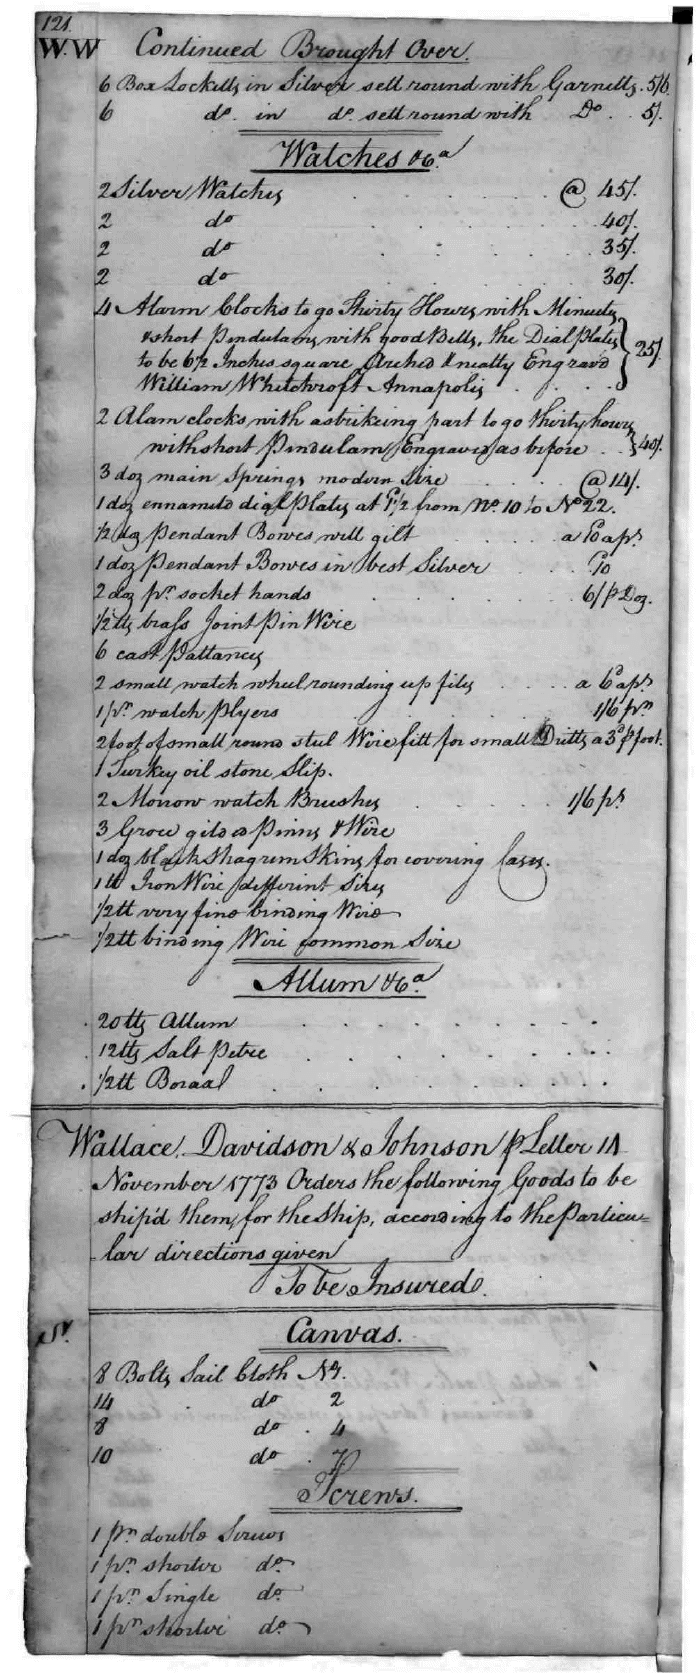 121.
W.W Continued Brought Over.
6 Box Locketts in Silver sett round with Garnetts. 5/6.
6 do. in do. sett round with Do. 5/.
Watches &Ca
2 Silver Watches @ 45/.
2 do 40/.
2 do 35/.
2 do 30/.
4 Alarm Clocks to go Thirty Hours with Minutes
& short Pendulams with good Bells, the Dial Plates
to be 6½ Inches square Arched & neatly Engrav'd 25/.
William Whitchroft Annapolis
2 Alam clocks with a strikeing part to go thirty hours
with short Pendulam Engraved as before 40/.
3 doz main Springs modern Size @ 14/.
1 doz ennameld dial Plates at from No. 10 to No 22.
½ doz Pendant Bowes well gilt a apr.
1 doz Pendant Bowes in best Silver
2 doz pr. socket hands 6/ p Doz.
½ tts brass Joint Pin Wire
6 cast Pattances
2 small watch wheel rounding up files a 6d apr.
1 pr. watch Plyers 1/6 pr.
2 foot of small round steel Wire fitt for small Drills a 3d p foot.
1 Turkey oil stone Slip.
2 Morrow watch Brushes 1/6 pr
3 Groce gilded Pinns & Wire
1 doz black Shagreen Skins for covering Cases.
1 tt Iron Wire different Sizes
½ tt very fine binding Wire
½ tt binding Wire common Size
Allum &Ca.
20 tts Allum
12 tts Salt Petre
½ tt Boraal
Wallace, Davidson & Johnson p Letter 14
November 1773 Orders the following Goods to be
ship'd them, for the Ship, according to the Particu=
lar directions given
To be Insured.
Canvas.
8 Bolts Sail Cloth No. 1.
14 do 2
8 do 4
10 do 7
Screws.
1 pr. double Screws
1 pr. shorter do.
1 pr. Single do.
1 pr. shorter do.